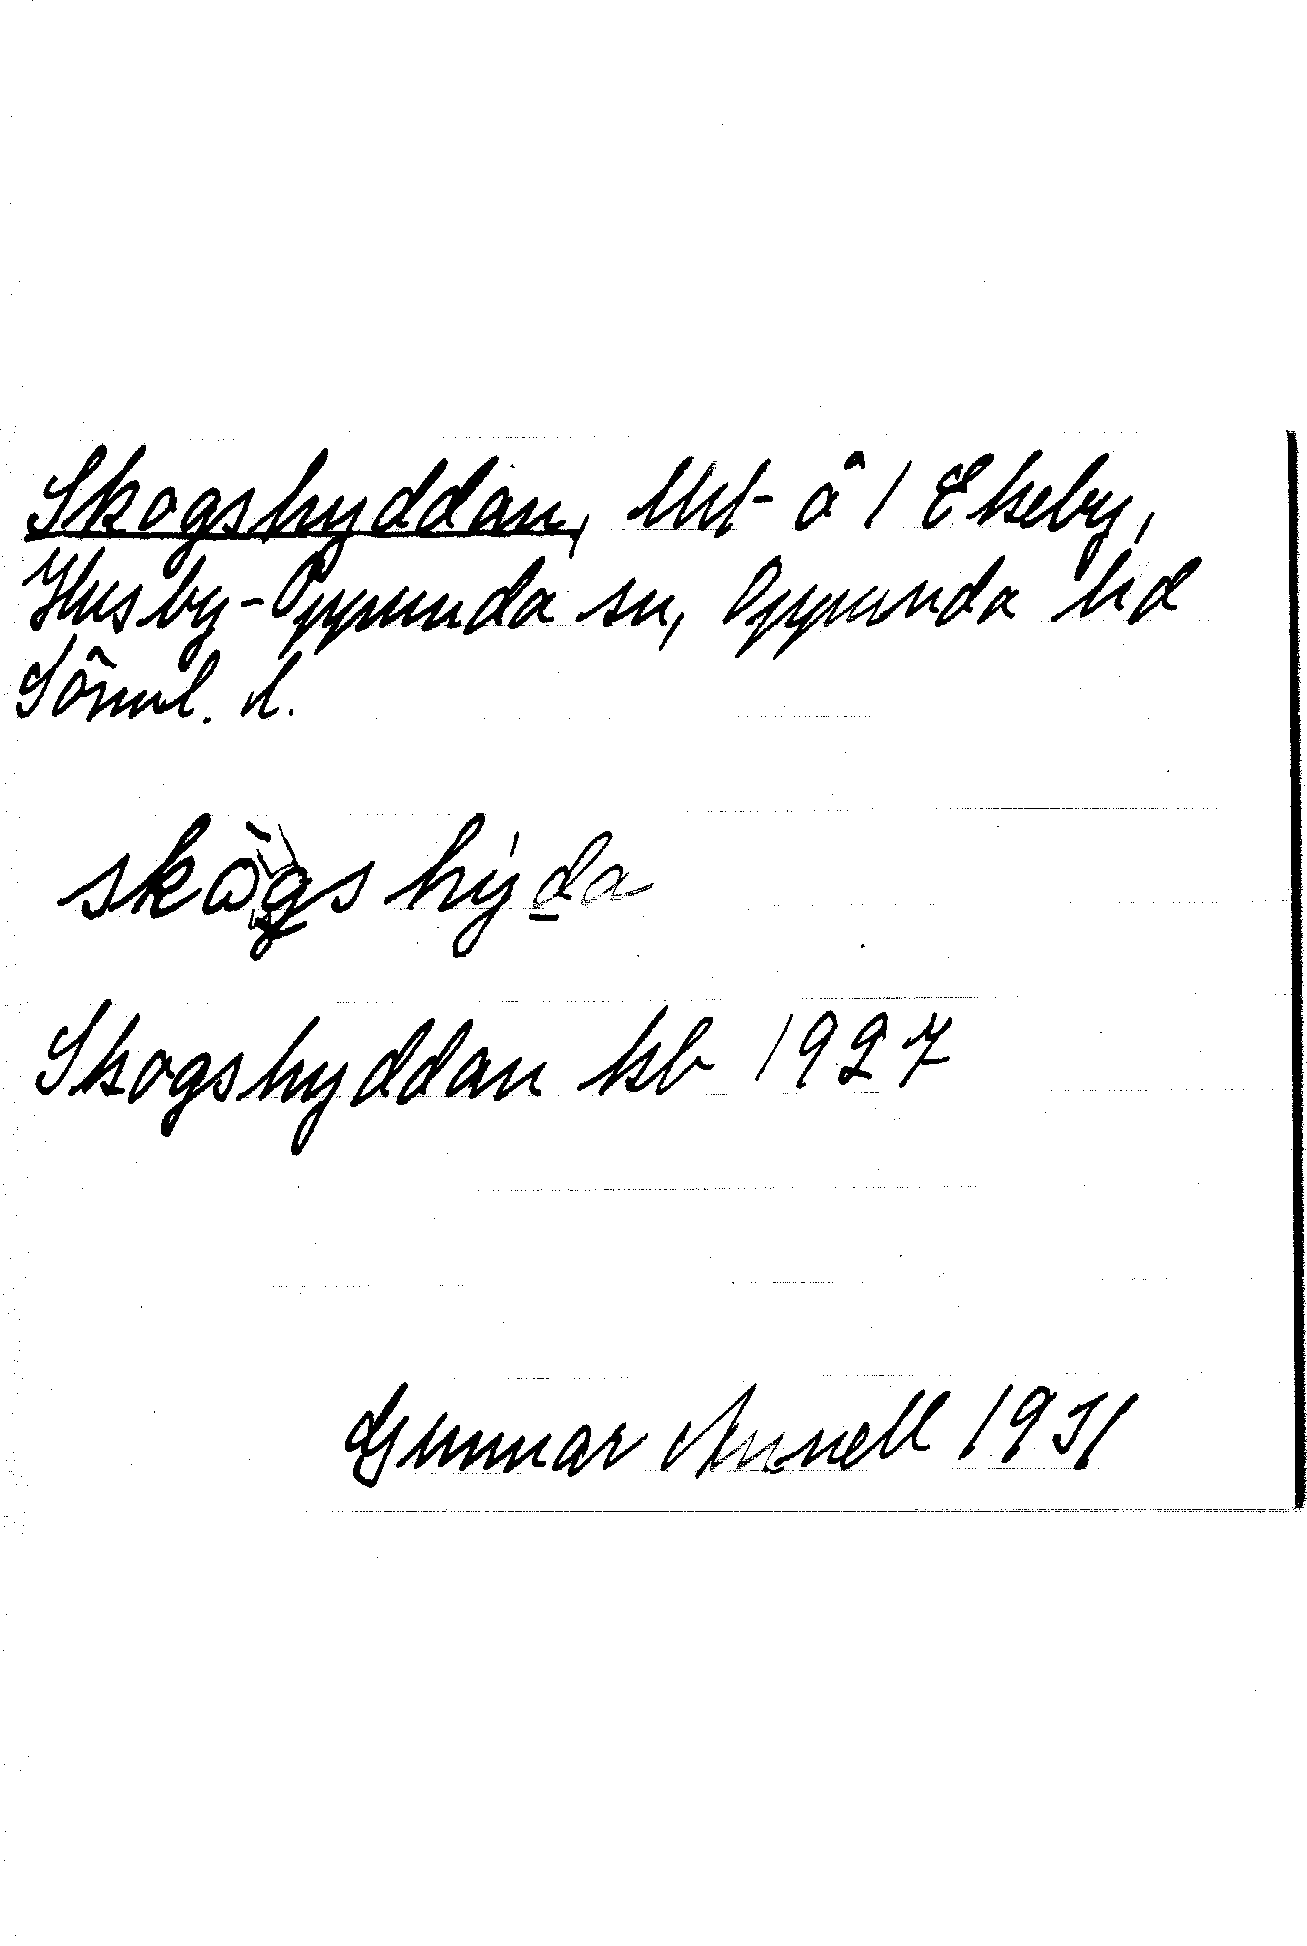 Skogshyddan, lht å 1 Ekeby,
Husby-Oppunda sn, Oppunda hd
Sörml. l.
skògshýda
Skogshyddan kb 1927
Gunnar Annell 1931